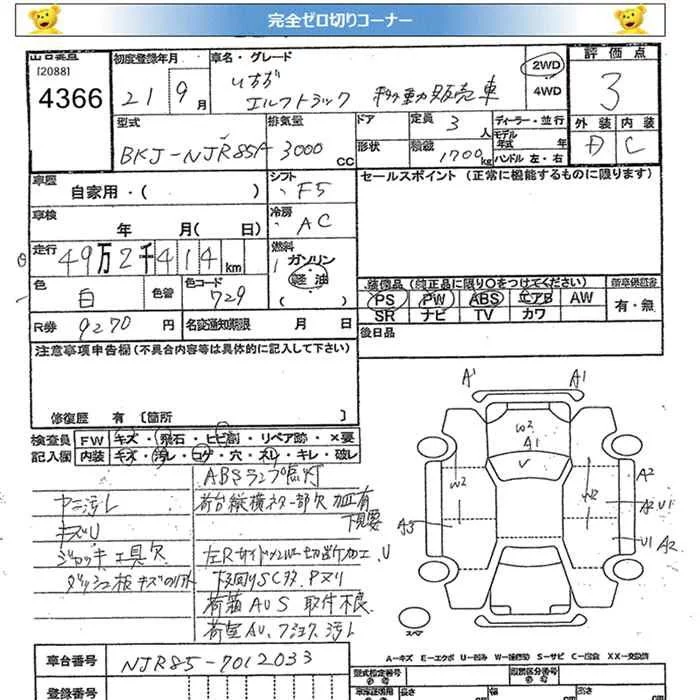 完全ゼロ切りコーナー
[2088]
4366
初度登録年月
21 9月
車名・グレード
いすゞ
エルフトラック 移動販売車
2WD
4WD
評価点
3
外装 内装
D C
型式
BKJ-NJR85A
排気量
3000 CC
ドア
形状
定員 3 人
積載 1700kg
ディーラー・並行
モデル年式 年
ハンドル 左・右
車歴
自家用・( )
シフト
F5
セールスポイント (正常に機能するものに限ります)
車検
年 月( 日)
冷房
AC
走行
49万2千414 km
燃料
ガソリン
軽油
色 白
色替
色コード 729
装備品(純正品に限り○をつけてください)
PS PW ABS エアB AW
SR ナビ TV カワ
新車保証書
有・無
R券 9270 円
名変通知期限 月 日
後日品
注意事項申告欄(不具合内容等は具体的に記入して下さい)
修復歴 有 [箇所 ]
検査員記入欄
FW キズ・飛石・ヒビ割・リペア跡・×要
内装 キズ・汚レ・コゲ・穴・スレ・キレ・破レ
ABSランプ点灯
ヤニ汚レ
荷台縦横ネター部欠 加工有
下見要
キズU
ジャッキ工具欠
左Rサイドメンバー切断加工、U
ダッシュ板キズの外
下回りSC多、Pヌリ
荷箱AUS 取付不良
A1 A1
W2
A1
W2
A2
A2 U1
A3
U1 A2
スペア
車台番号 NJR85-7012033
A-キズ E-エクボ U-凹み W-補修跡 S-サビ C-腐食 XX-交換済
登録番号
型式指定番号
類別区分番号
長さ
幅
高さ